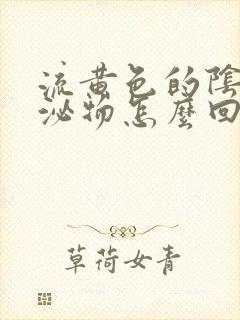 流黄色的陰
泌物怎麼回
草荷女青